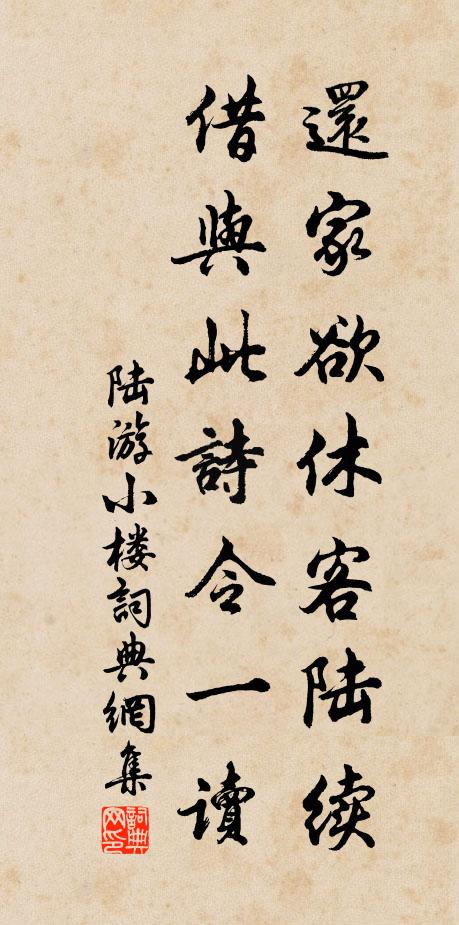 還家欲休客陸續
借與此詩令一讀
陆游小楼詞典網集
詞典网印